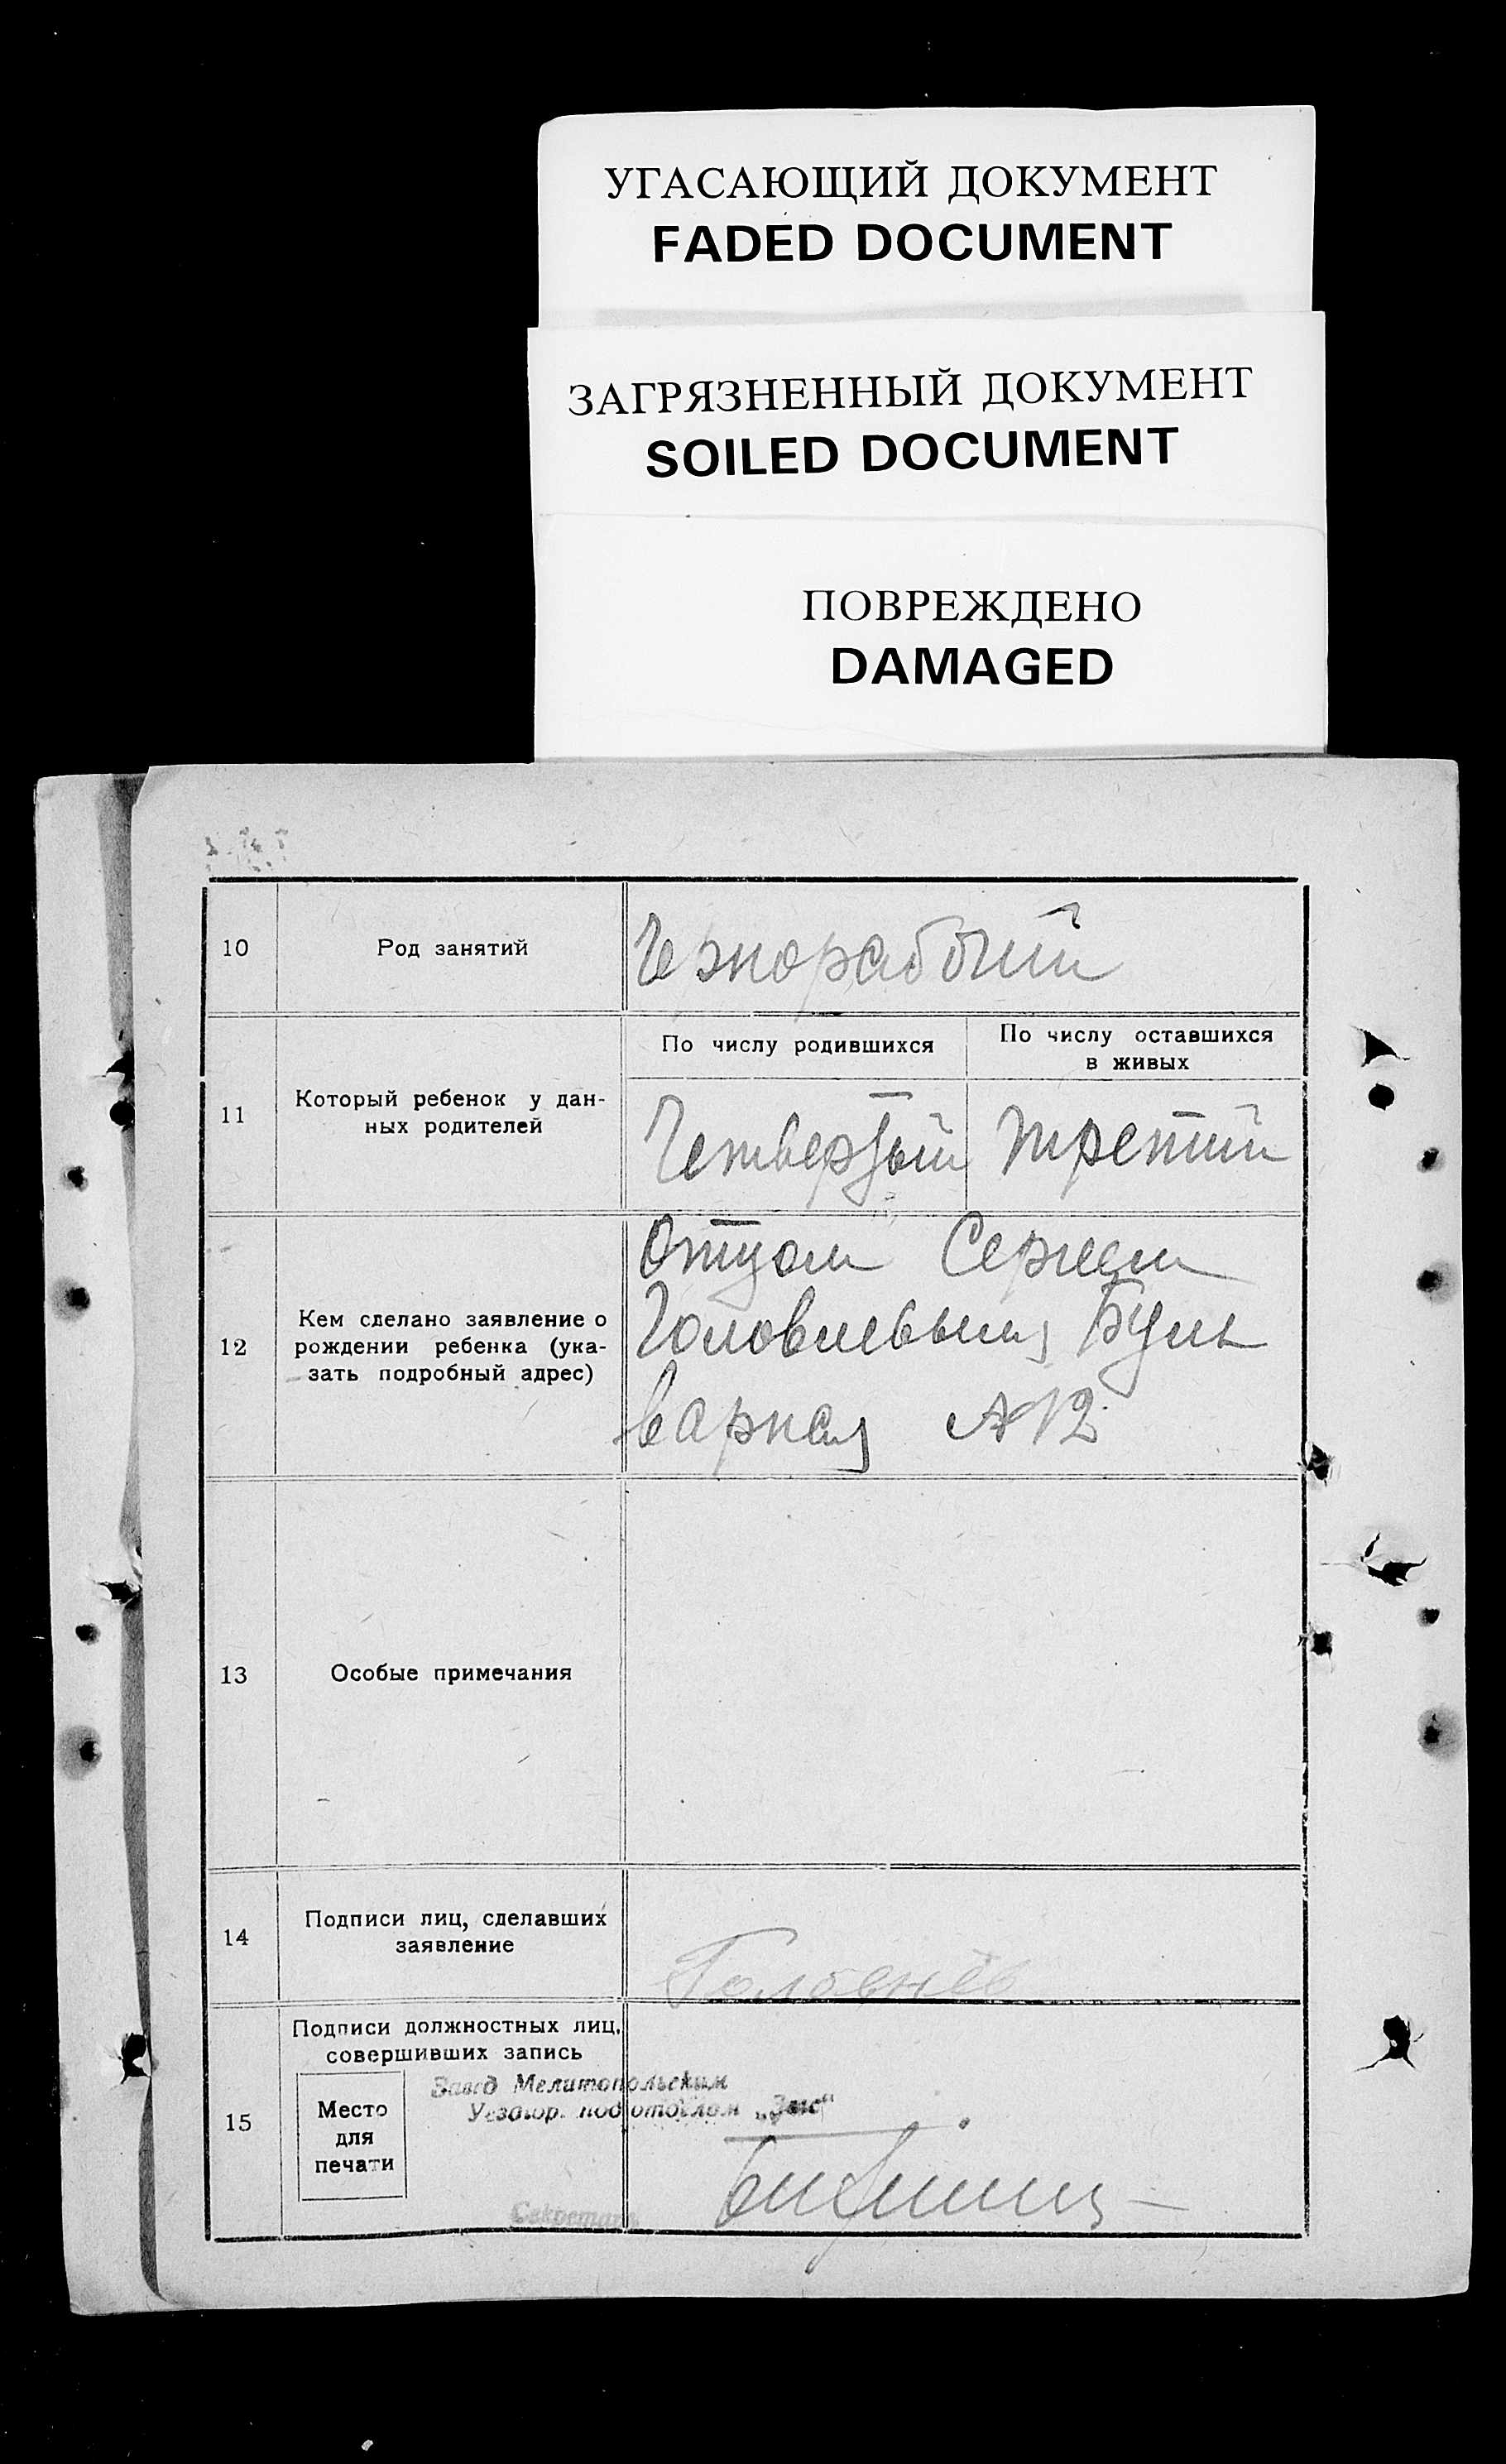 УГАСАЮЩИЙ ДОКУМЕНТ
FADED DOCUMENT
ЗАГРЯЗНЕННЫЙ ДОКУМЕНТ
SOILED DOCUMENT
ПОВРЕЖДЕНО
DAMAGED
10
Род занятий
Чернорабочий
11
Который ребенок у дан-
ных родителей
По числу родившихся
Четвертый
По числу оставшихся
в живых
третий
12
Кем сделано заявление о
рождении ребенка (ука-
зать подробный адрес)
Отцом Сергеем
Головневым, Буль
варная №12
13
Особые примечания
14
Подписи лиц, сделавших
заявление
Головнёв
15
Подписи должностных лиц,
совершивших запись
Место
для
печати
Завед Мелитопольским
Уездгор. подотделом „Загс“
Секретарь